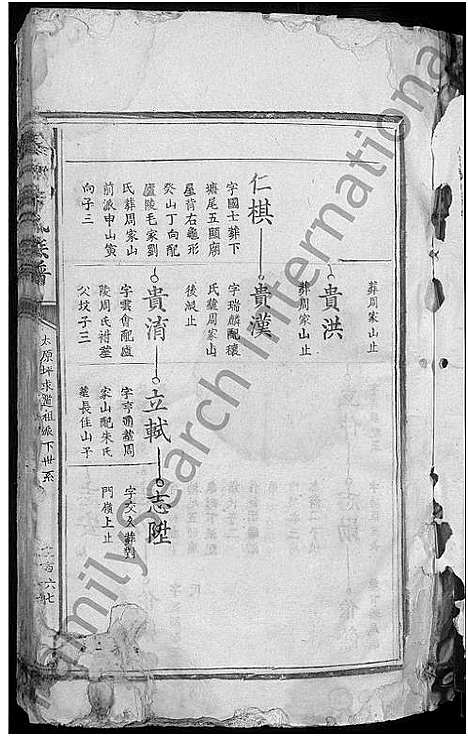 葬周家山止
貴洪
葬周家山止
仁棋
字國士葬下
壠尾五顯廟
屋背右龜形
癸山丁向配
廬陵毛家劉
氏葬周家山
前派申山寅
向子三
貴漢
字瑞麟配穰
氏葬周家山
後減止
貴淯
字雲會配廬
陵周氏祔塟
父坟子三
立軾
字亨通葬周
家山配朱氏
葬長佳山子
志陞
字交久葬對
門嶺上止
族譜
太原坪求濫祖派下世系
FamilySearch International